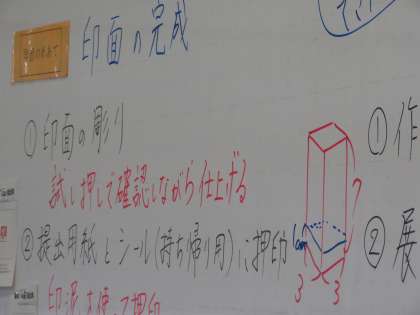 印面の完成
①印面の彫り
試し押しで確認しながら仕上げる
②提出用紙とシール(持ち帰り用)に押印
印泥を使って押印
7
1cm
3 3
①作
②展